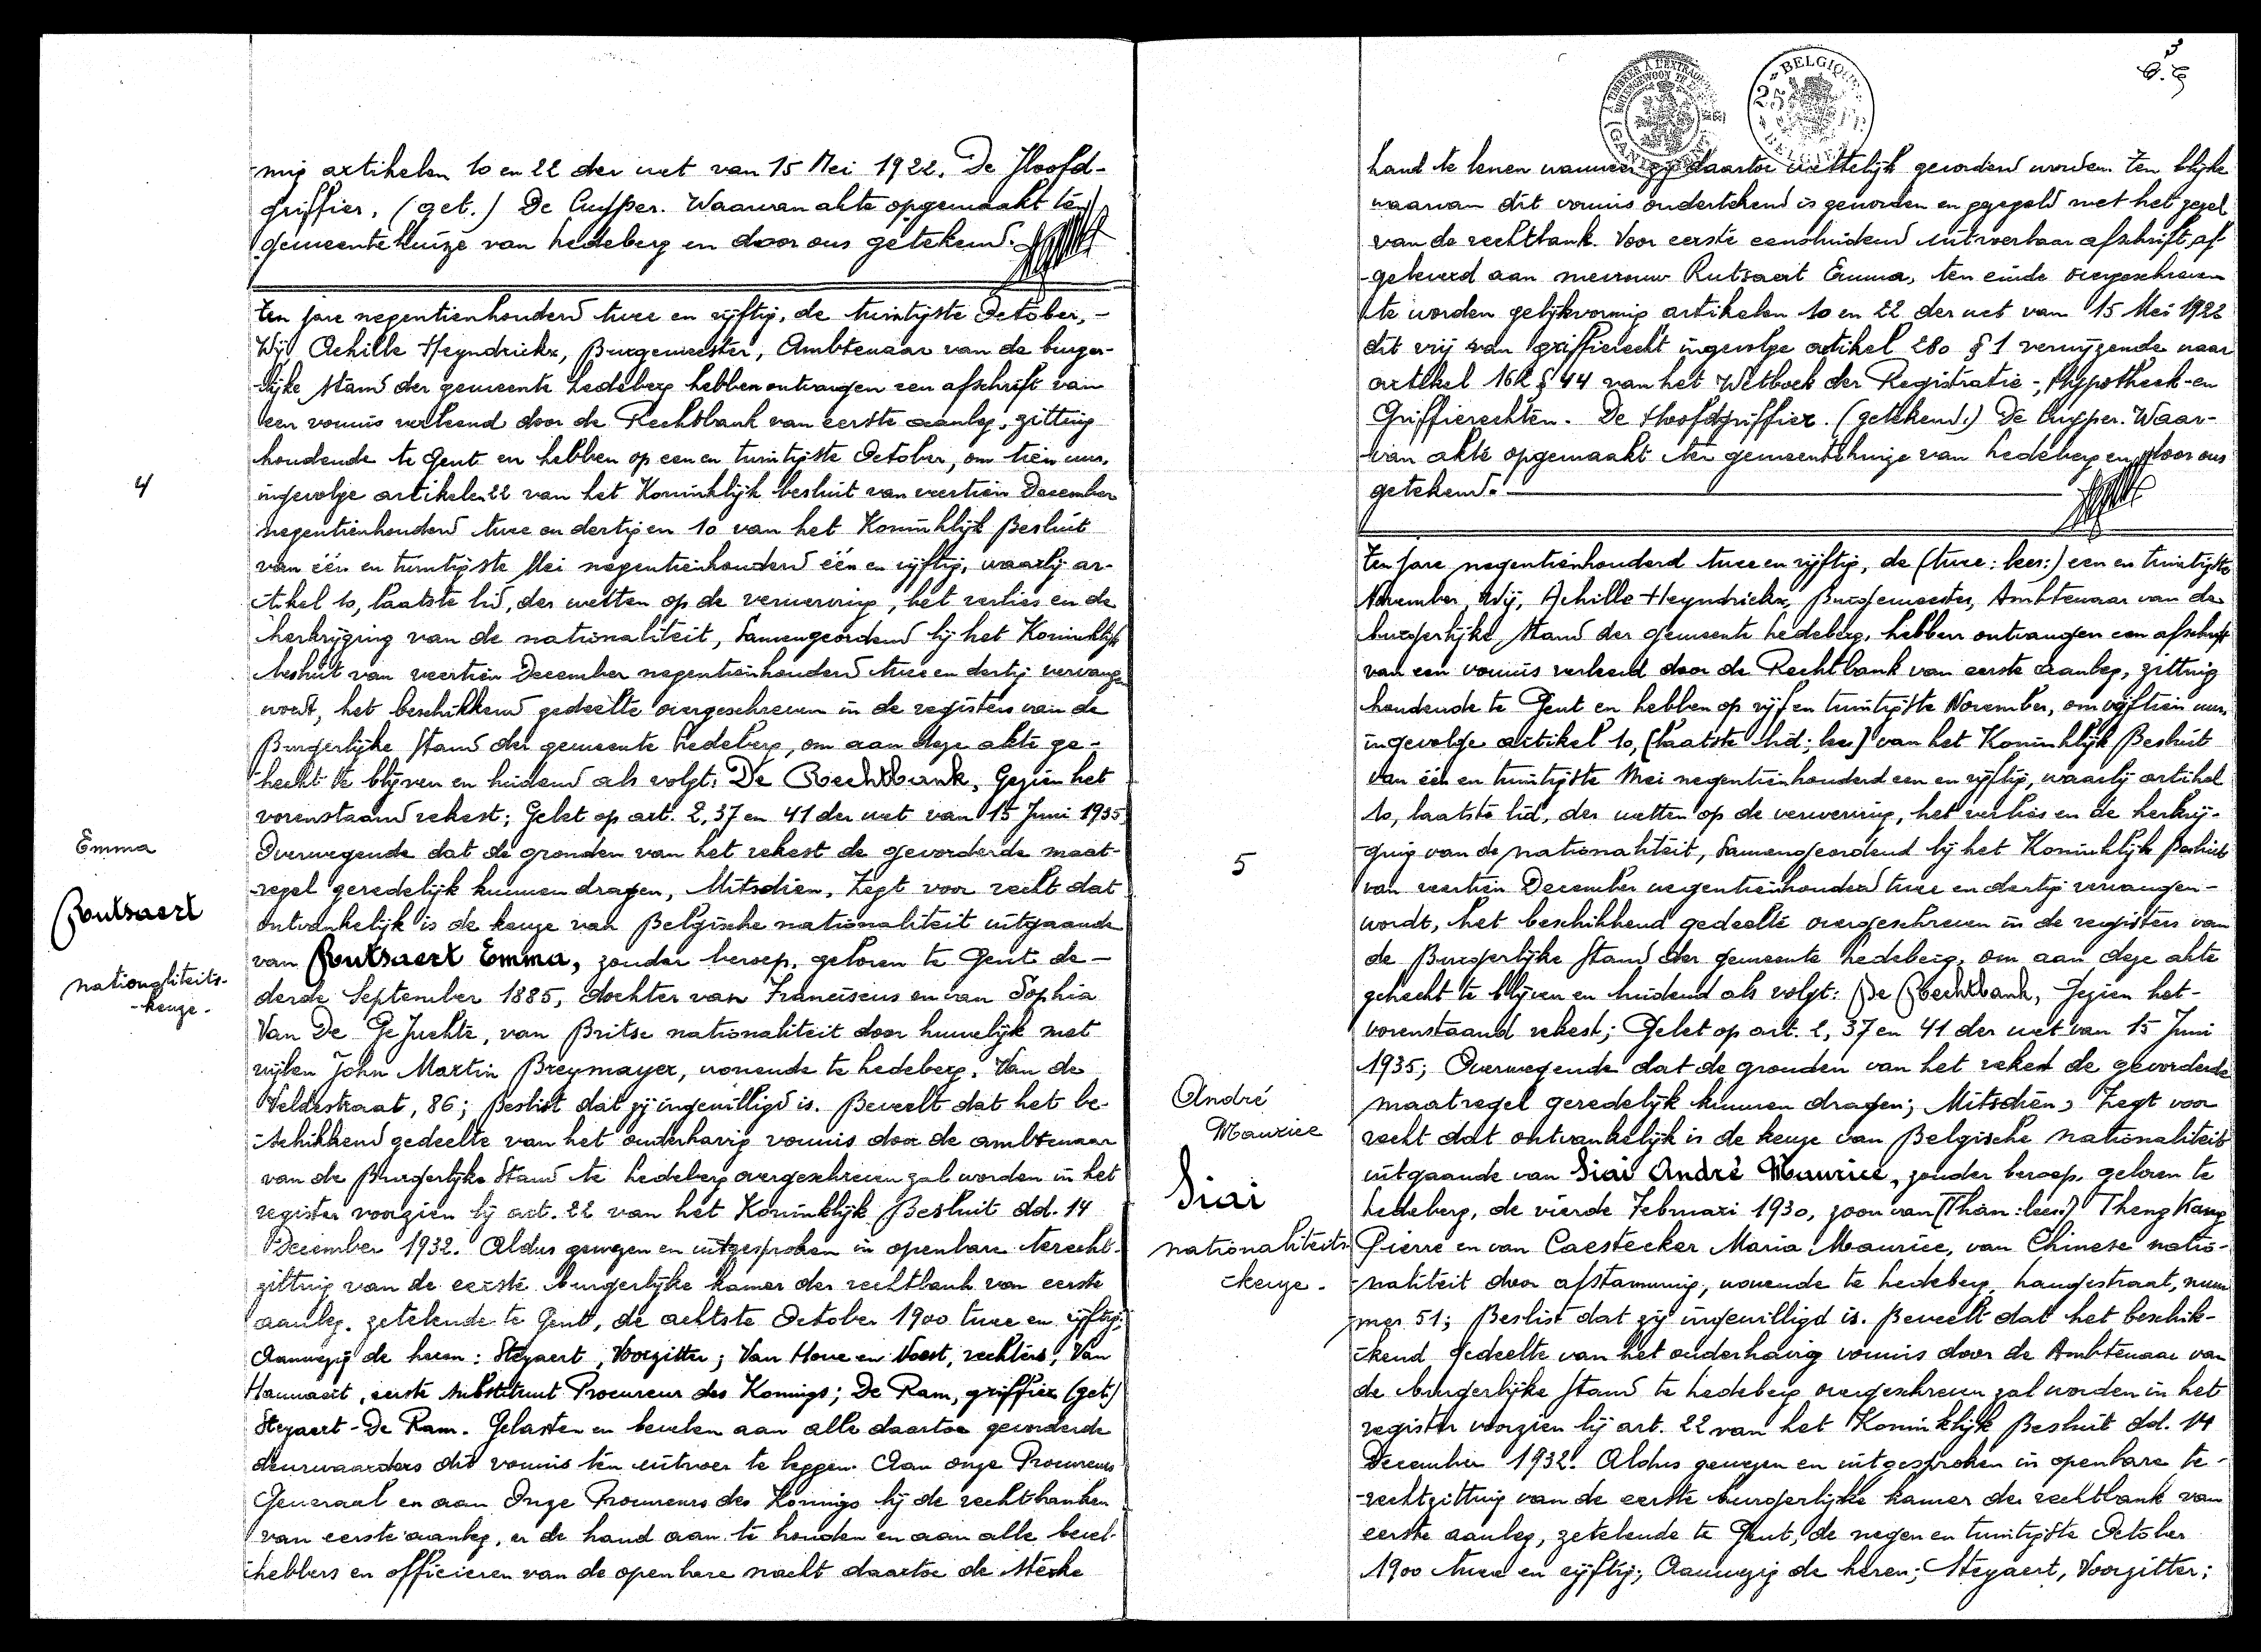 -mig artikelen 10 en 22 der wet van 15 Mei 1922. De Hoofd-
griffier, (get.) De Cuyper. Waarvan akte opgemaakt ten
gemeentehuize van Ledeberg en door ons getekend.
Ten jare negentienhonderd twee en vijftig, de twintigste October, -
Wij Achille Heyndrickx, Burgemeester, Ambtenaar van de burger-
-lijke stand der gemeente Ledeberg hebben ontvangen een afschrift van
een vonnis verleend door de Rechtbank van eerste aanleg, zitting
houdende te Gent en hebben op een en twintigste October, om tien uur,
ingevolge artikelen 22 van het Koninklijk besluit van veertien December
negentienhonderd twee en dertig en 10 van het Koninklijk Besluit
van één en twintigste Mei negentienhonderd één en vijftig, waarbij ar-
-tikel 10, laatste lid, der wetten op de verwerving, het verlies en de
herkrijging van de nationaliteit, Samengeordend bij het Koninklijk
besluit van veertien December negentienhonderd twee en dertig vervangen
wordt, het beschikkend gedeelte overgeschreven in de registers van de
Burgerlijke stand der gemeente Ledeberg, om aan deze akte ge-
-hecht te blijven en luidend als volgt: De Rechtbank, Gezien het
vorenstaand rekest; Gelet op art. 2, 37 en 41 der wet van 15 Juni 1935
Overwegende dat de gronden van het rekest de gevorderde maat-
-regel geredelijk kunnen dragen, Mitsdien, Zegt voor recht dat
ontvankelijk is de keuze van Belgische nationaliteit uitgaande
van Rutsaert Emma, zonder beroep, geboren te Gent de -
derde September 1885, dochter van Franciscus en van Sophia
Van De Gejuchte, van Britse nationaliteit door huwelijk met
wijlen John Martin Breymayer, wonende te Ledeberg, Van de
Veldestraat, 86; Beslist dat zij ingewilligd is. Beveelt dat het be-
-schikkend gedeelte van het onderhavig vonnis door de ambtenaar
van de Burgerlijke Stand te Ledeberg overgeschreven zal worden in het
register voorzien bij art. 22 van het Koninklijk Besluit dd. 14
December 1932. Aldus gewezen en uitgesproken in openbare terecht-
zitting van de eerste burgerlijke kamer der rechtbank van eerste
aanleg, zetelende te Gent, de achtste October 1900 twee en vijftig;
Aanwezig de heren: Steyaert, Voorzitter; Van Hove en Voest, rechters, Van
Hauwaert, eerste substituut Procureur des Konings; De Ram, griffier (get)
Steyaert - De Ram. Gelasten en bevelen aan alle daartoe gevorderde
deurwaarders dit vonnis ten uitvoer te leggen. Aan onze Procureurs
Generaal en aan Onze Procureurs des Konings bij de rechtbanken
van eerste aanleg, er de hand aan te houden en aan alle bevel-
-hebbers en officieren van de openbare macht daartoe de sterke
4
Emma
Rutsaert
nationaliteits-
-keuze.
3
hand te lenen wanneer zij daartoe wettelijk gevorderd worden. Ten blijke
waarvan dit vonnis ondertekend is geworden en gezegeld met het zegel
van de rechtbank. Voor eerste eensluidend uitvoerbaar afschrift af-
-geleverd aan mevrouw Rutsaert Emma, ten einde overgeschreven
te worden gelijkvormig artikelen 10 en 22 der wet van 15 Mei 1922
dit vrij van griffierecht ingevolge artikel 280 § 1 verwijzende naar
artikel 162 § 44 van het Wetboek der Registratie-, Hypotheek- en
Griffierechten. De Hoofdgriffier. (getekend.) De Cuyper. Waar-
-van akte opgemaakt ten gemeentehuize van Ledeberg en door ons
getekend.
Ten jare negentienhonderd twee en vijftig, de (twee: lees:) een en twintigste
November, Wij, Achille Heyndrickx, Burgemeester, Ambtenaar van de
burgerlijke stand der gemeente Ledeberg, hebben ontvangen een afschrift
van een vonnis verleend door de Rechtbank van eerste aanleg, zitting
houdende te Gent en hebben op vijf en twintigste November, om vijftien uur,
ingevolge artikel 10, (laatste lid; lees) van het Koninklijk Besluit
van één en twintigste Mei negentienhonderd een en vijftig, waarbij artikel
10, laatste lid, der wetten op de verwerving, het verlies en de herkrij-
-ging van de nationaliteit, Samengeordend bij het Koninklijk Besluit
van veertien December negentienhonderd twee en dertig vervangen -
wordt, het beschikkend gedeelte overgeschreven in de registers van
de Burgerlijke Stand der gemeente Ledeberg, om aan deze akte
gehecht te blijven en luidend als volgt: De Rechtbank, Gezien het -
vorenstaand rekest; Gelet op art. 2, 37 en 41 der wet van 15 Juni
1935; Overwegende dat de gronden van het rekest de gevorderde
maatregel geredelijk kunnen dragen; Mitsdien, Zegt voor
recht dat ontvankelijk is de keuze van Belgische nationaliteit
uitgaande van Siai André Maurice, zonder beroep, geboren te
Ledeberg, de vierde Februari 1930, zoon van (Than: lees:) Theng Kang
Pierre en van Caestecker Maria Maurice, van Chinese natio-
-naliteit door afstamming, wonende te Ledeberg, Langestraat, num-
mer 51; Beslist dat zij ingewilligd is. Beveelt dat het beschik-
-kend gedeelte van het onderhavig vonnis door de Ambtenaar van
de burgerlijke stand te Ledeberg overgeschreven zal worden in het
register voorzien bij art. 22 van het Koninklijk Besluit dd. 14
December 1932. Aldus gewezen en uitgesproken in openbare te-
-rechtzitting van de eerste burgerlijke kamer der rechtbank van
eerste aanleg, zetelende te Gent, de negen en twintigste October
1900 twee en vijftig; Aanwezig de heren; Steyaert, Voorzitter;
5
André
Maurice
Siai
nationaliteits-
-keuze.